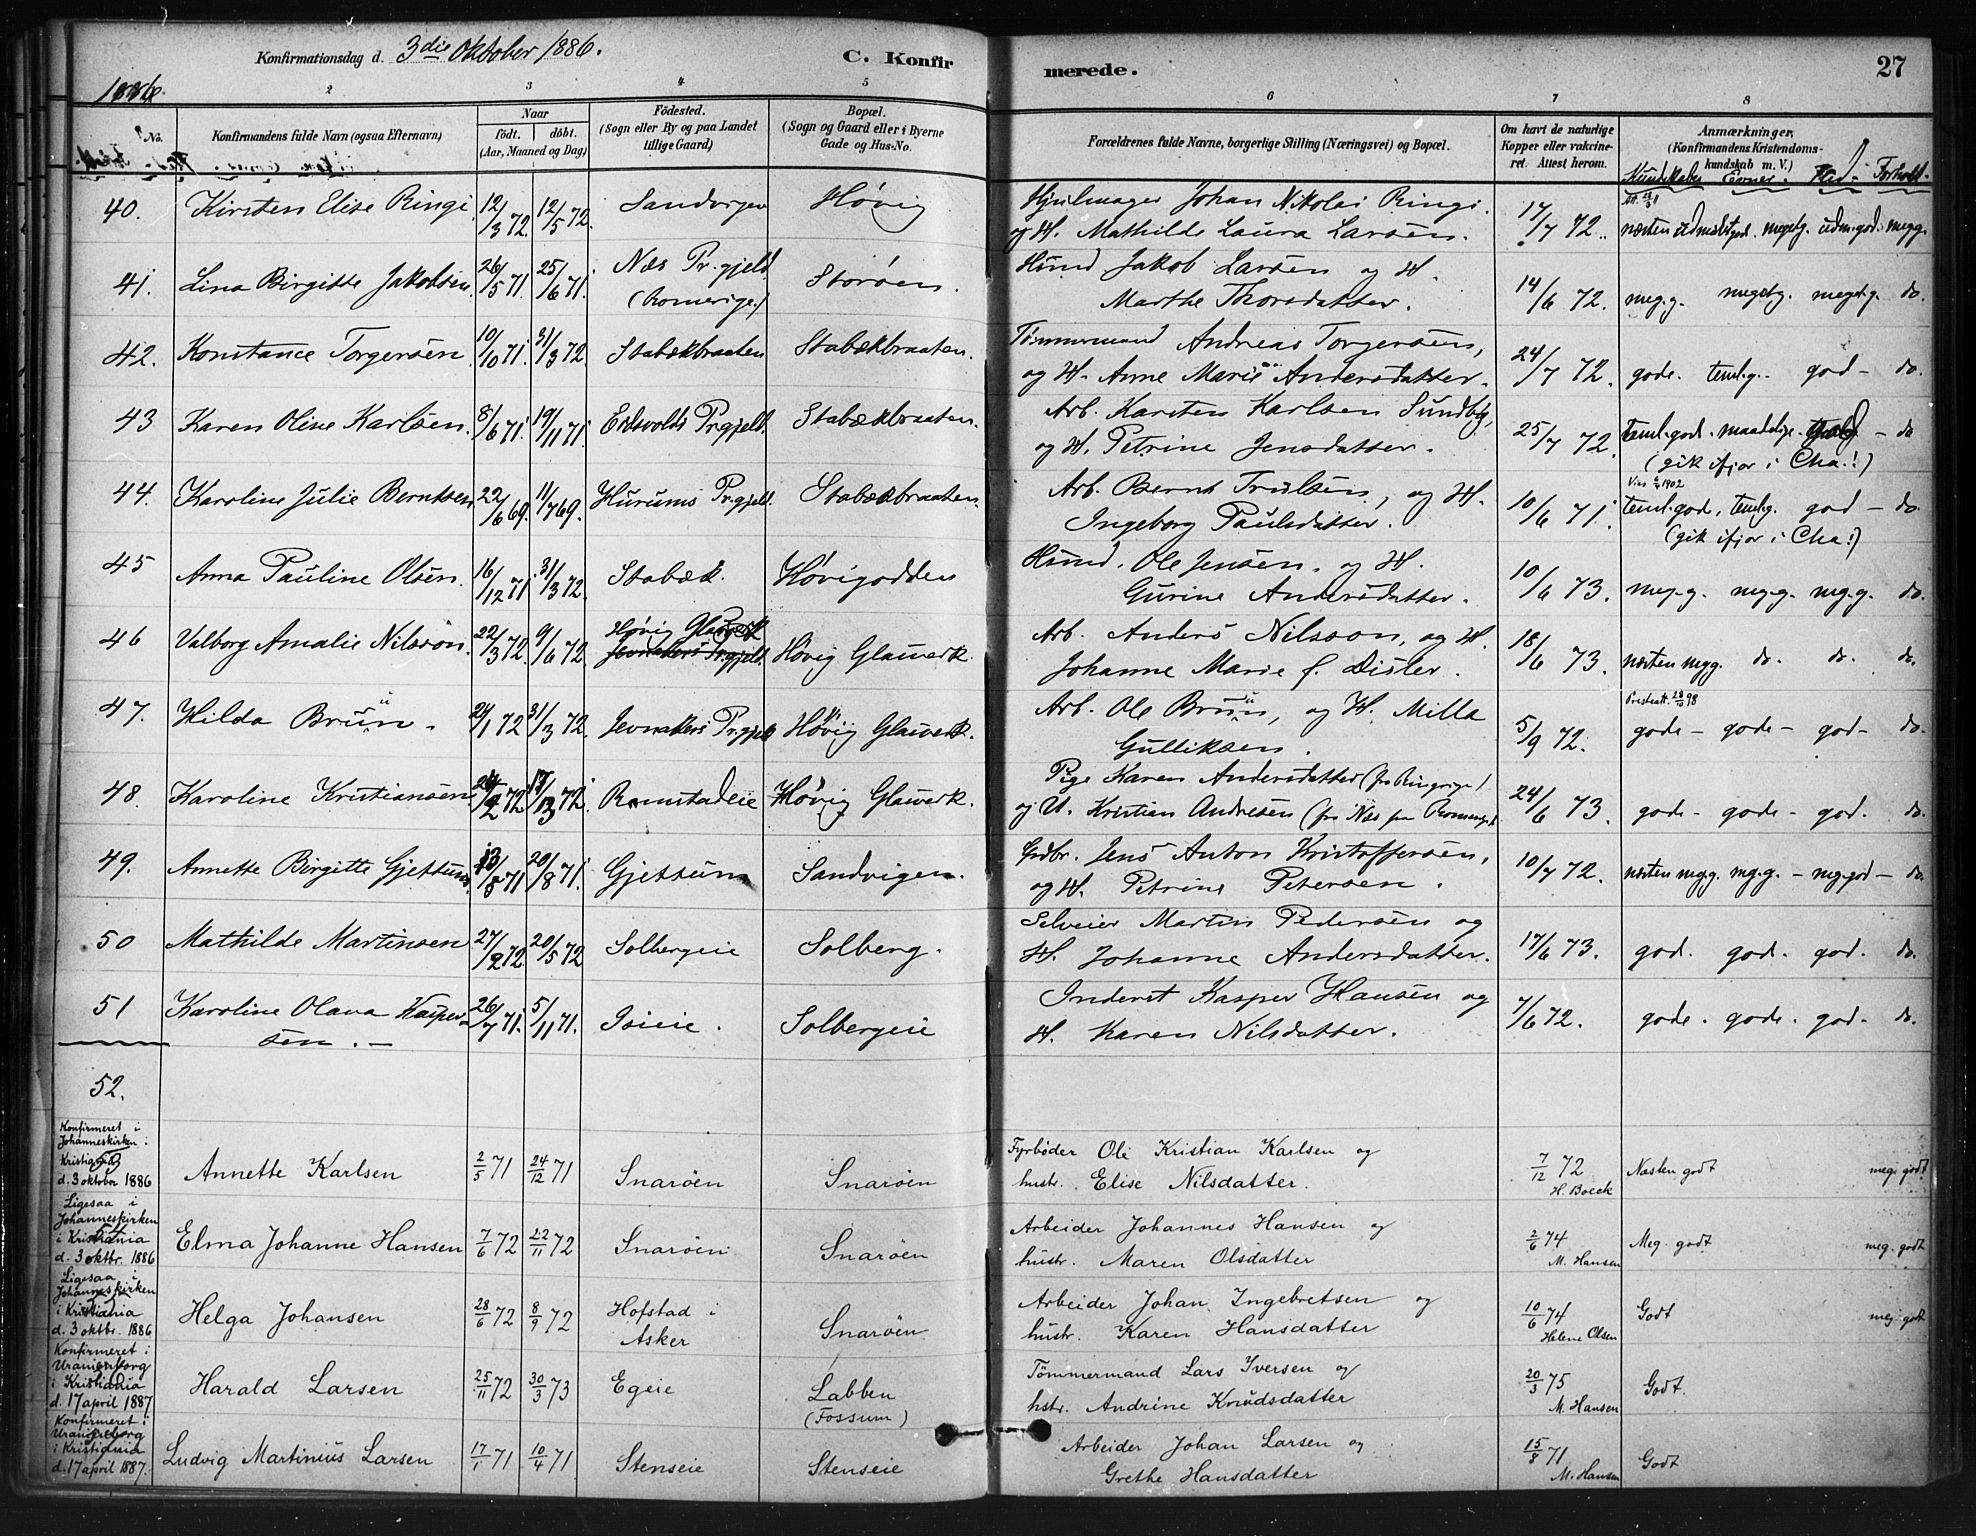 Konfirmationsdag d. 3die Oktober 1886. C. Konfir merede. 27
1886.
2 3 4 5 6 7 8
No. Konfirmandens fulde Navn (ogsaa Efternavn) Naar født. døbt. (Aar, Maaned og Dag) Fødested. (Sogn eller By og paa Landet tillige Gaard) Bopæl. (Sogn og Gaard eller i Byerne Gade og Hus-No. Forældrenes fulde Navne, borgerlige Stilling (Næringsvei) og Bopæl. Om havt de naturlige Kopper eller vakcineret. Attest herom. Anmærkninger. (Konfirmandens Kristendomskundskab m. V.)
Kundskaber Evner. Flid. Forhold.
40. Kirsten Elise Ringi 12/3 72. 12/5 72. Sandvigen Høvig Hjulmager Johan Nikolai Ringi. 17/7 72.
og H. Mathilde Laura Larsen. næsten udmærketgod. megetg. udm. god. meg g.
41. Lina Birgitte Jakobsen 26/5 71. 25/6 71. Næs Pr.gjeld (Romerige.) Storøen. Husmd Jakob Larsen og H.
Marthe Thorsdatter. 14/6 72. meg. g. megetg. megetg. do.
42. Konstance Torgersen 10/10 71. 31/3 72. Stabækbraaten Stabækbraaten. Tømmermand Andreas Torgersen,
og H. Anne Marie Andersdatter. 24/7 72. gode. teml. g. god - do.
43 Karen Oline Karlsen. 8/6 71. 19/11 71. Eidsvolds Prgjeld. Stabækbraaten. Arb. Karsten Karlsen Sundby,
og H. Petrine Jensdatter. 25/7 72. teml. god. maadelige. - do
(gik ifjor i Cha.!)
44. Karoline Julie Berntsen 22/6 69. 11/7 69. Hurums Pr.gjeld. Stabækbraaten. Arb. Bernt Trulsen, og H.
Ingeborg Paulsdatter. 10/6 71. teml. god, teml. g. god - do.
(gik ifjor i Cha!)
45 Anna Pauline Olsen. 16/12 71. 31/3 72. Stabæk. Høvigodden Husmd. Ole Jensen. og H.
Gurine Andersdatter. 10/6 73. meg. g. meg. g. meg. g. do.
46 Valborg Amalie Nilsson. 22/3 72. 9/6 72. Høvig Glasverk Jevnakers Prgjeld. Høvig Glasverk. Arb. Anders Nilsson, og H.
Johanne Marie f. Disler. 18/6 73. næsten meg g. do. do. do.
47. Hilda Brun. 21/1 72 31/3 72. Jevnakers Pr.gjeld Høvig Glasverk. Arb. Ole Brun, og H. Milla
Gulliksen. 5/9 72. Presteatt. 28/10 98 gode - gode - god - do.
48. Karoline Kristiansen 24/2 72 17/3 72. Ramstadeie Høvig Glasverk. Pige Karen Andersdatter (fra Ringerige)
og U. Kristian Andresen (fra Næs paa Romerige). 24/6 73. gode - gode - god. do.
49. Annette Birgitte Gjettum 13/5 71 20/8 71. Gjettum Sandvigen. Grdbr. Jens Anton Kristoffersen,
og H. Petrine Petersen. 10/7 72. næsten meg g. mg. g. - mg. god - do.
50 Mathilde Martinsen 27/2 72. 20/5 72 Solbergeie Solberg. Selveier Martin Pedersen og
H. Johanne Andersdatter. 17/6 73. god. god. god. do.
51 Karoline Olava Kaspersen. - 26/7 71. 5/11 71. Isieie. Solbergeie Inderst Kasper Hansen og
H. Karen Nilsdatter. 7/6 72. gode. gode. god - do.
52.
Konfirmeret i Johanneskirken i Kristiania d. 3 oktober 1886 Annette Karlsen 2/5 71 24/12 71 Snarøen Snarøen Fyrbøder Ole Kristian Karlsen og
hustr. Elise Nilsdatter. 7/12 72 H. Boeck Næsten godt meg. godt
Ligesaa i Johanneskirken i Kristiania d. 3 oktbr. 1886 Elma Johanne Hansen 7/6 72 22/11 72 Snarøen Snarøen Arbeider Johannes Hansen og
hustr. Maren Olsdatter 2/6 74 M. Hansen Meg. godt meg. godt
Ligesaa i Johanneskirken i Kristiania d. 3 oktbr. 1886 Helga Johansen 28/6 72 8/9 72 Hofstad i Asker Snarøen Arbeider Johan Ingebretsen og
hustr. Karen Hansdatter 10/6 74 Helene Olsen Godt meg. godt
Konfirmeret i Uranienborg i Kristiania d. 17 april 1887 Harald Larsen 25/11 72 30/3 73 Egeie Labben (Fossum) Tømmermand Lars Iversen og
hstr. Andrine Knudsdatter 20/3 75 M. Hansen Godt.
Konfirmeret i Uranienborg i Kristiania d. 17 april 1887. Ludvig Martinius Larsen 17/1 71 10/4 71 Stenseie Stenseie Arbeider Johan Larsen og
Grethe Hansdatter 15/8 71 M. Hansen Godt